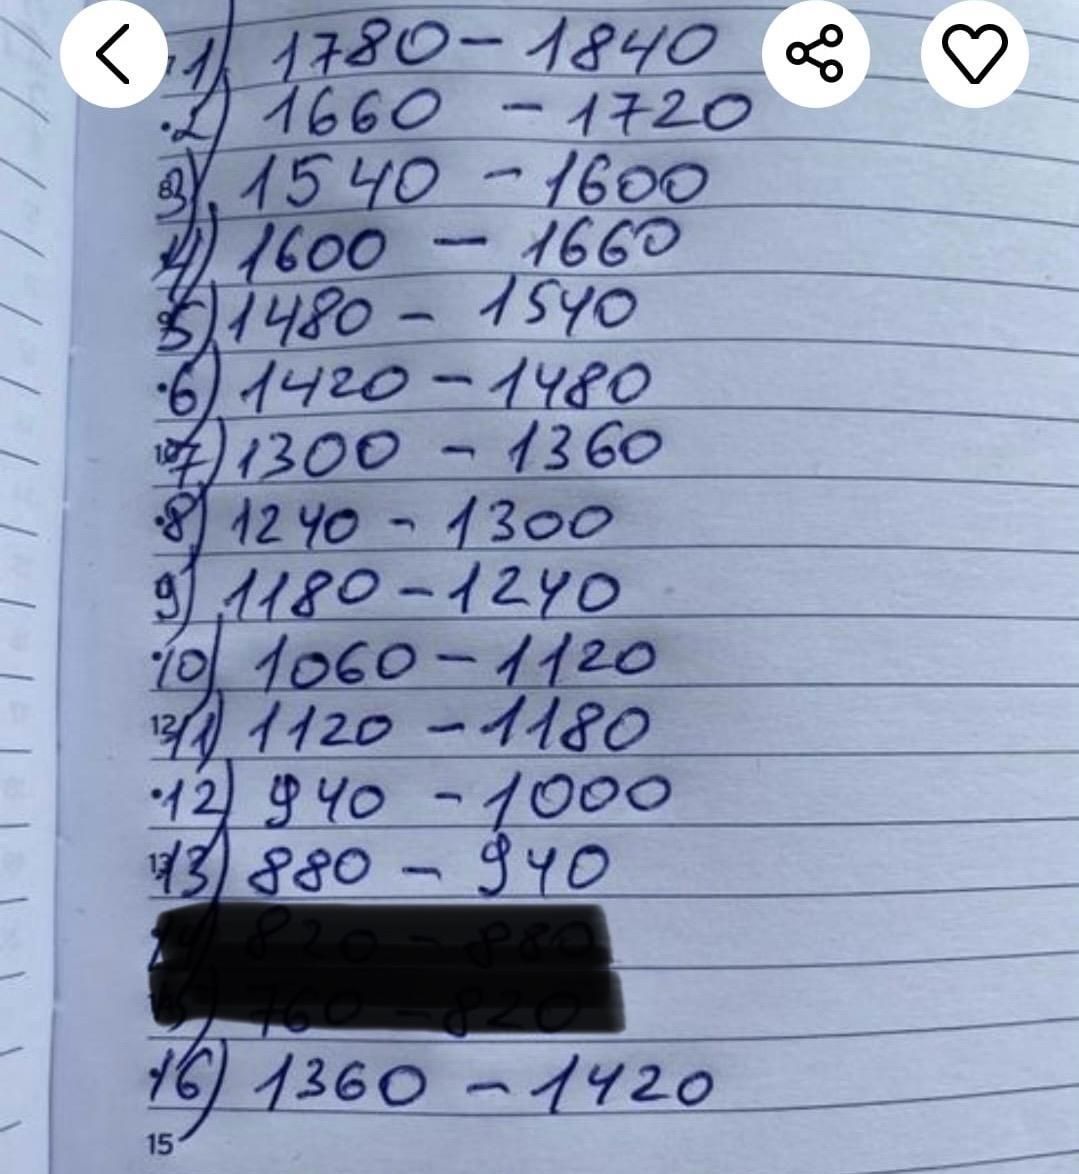 1) 1780 - 1840
2) 1660 - 1720
3) 1540 - 1600
4) 1600 - 1660
5) 1480 - 1540
6) 1420 - 1480
7) 1300 - 1360
8) 1240 - 1300
9) 1180 - 1240
10) 1060 - 1120
11) 1120 - 1180
12) 940 - 1000
13) 880 - 940
820 - 880
760 - 820
16) 1360 - 1420
15